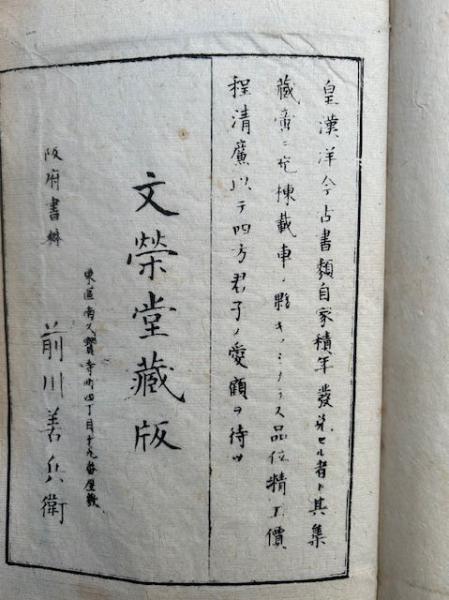 皇漢洋今古書類自家積年發兌セル者ト其集
藏啻ニ充棟載車ノ夥キノミナラス品位精工價
程清廉以テ四方君子ノ愛顧ヲ待ツ
文榮堂藏版
阪府書肆
東區南久寶寺町四丁目十九番屋敷
前川善兵衛